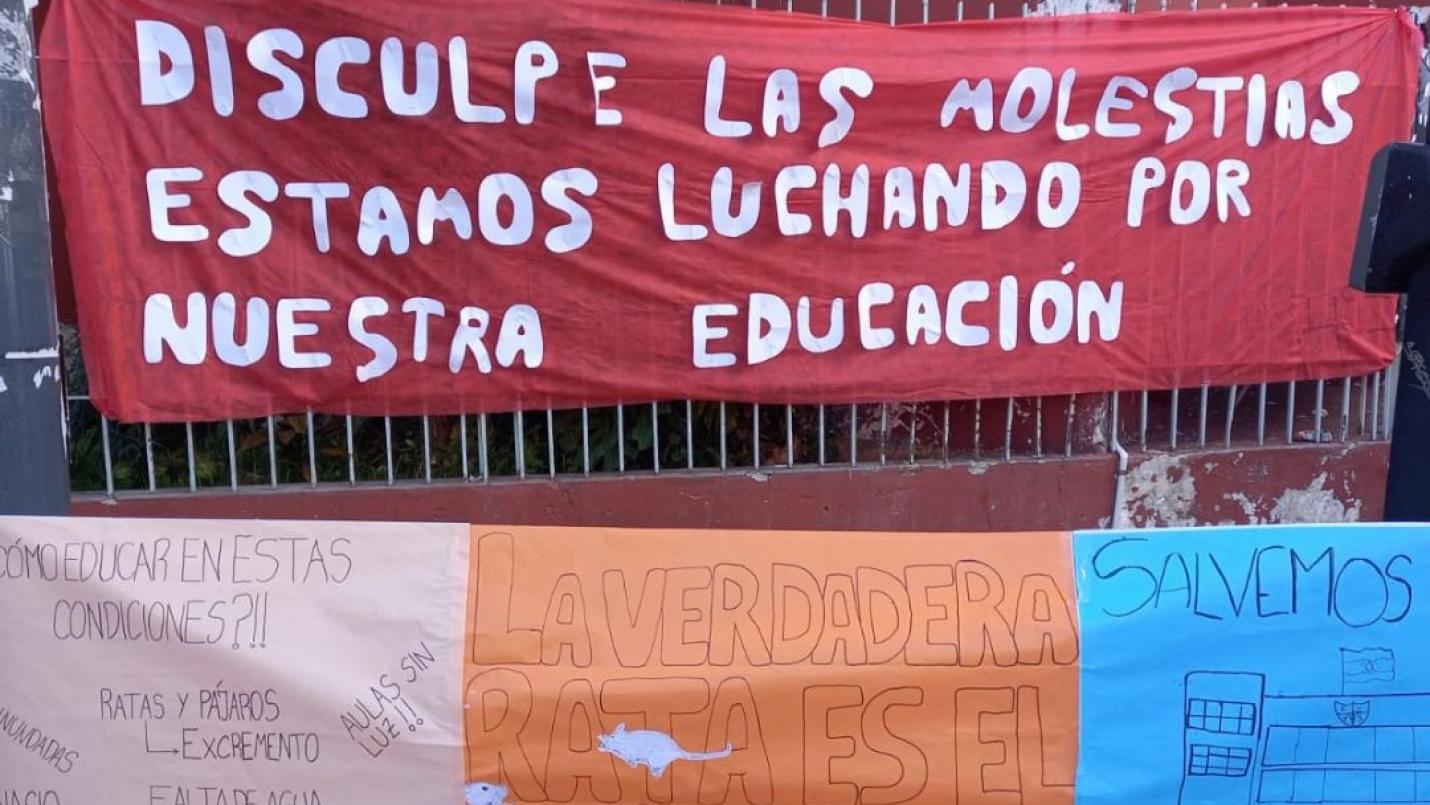 DISCULPE LAS MOLESTIAS
ESTAMOS LUCHANDO POR
NUESTRA EDUCACIÓN
CÓMO EDUCAR EN ESTAS
CONDICIONES?!!
RATAS Y PÁJAROS
EXCREMENTO
AULAS SIN
LUZ!!
INUNDADAS
FALTA DE AGUA
LA VERDADERA
RATA ES EL
SALVEMOS